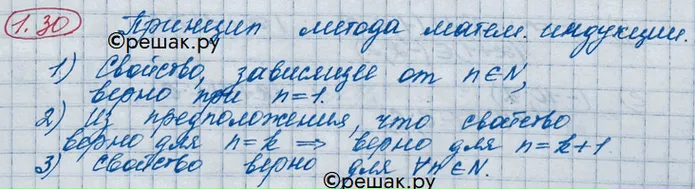 1.30 Принцип метода матем. индукции.
©решак.ру
1) Свойство, зависящее от n∈N,
верно при n=1.
2) Из предположения, что свойство
верно для n=k ⇒ верно для n=k+1
3) свойство верно для ∀n∈N.
©решак.ру